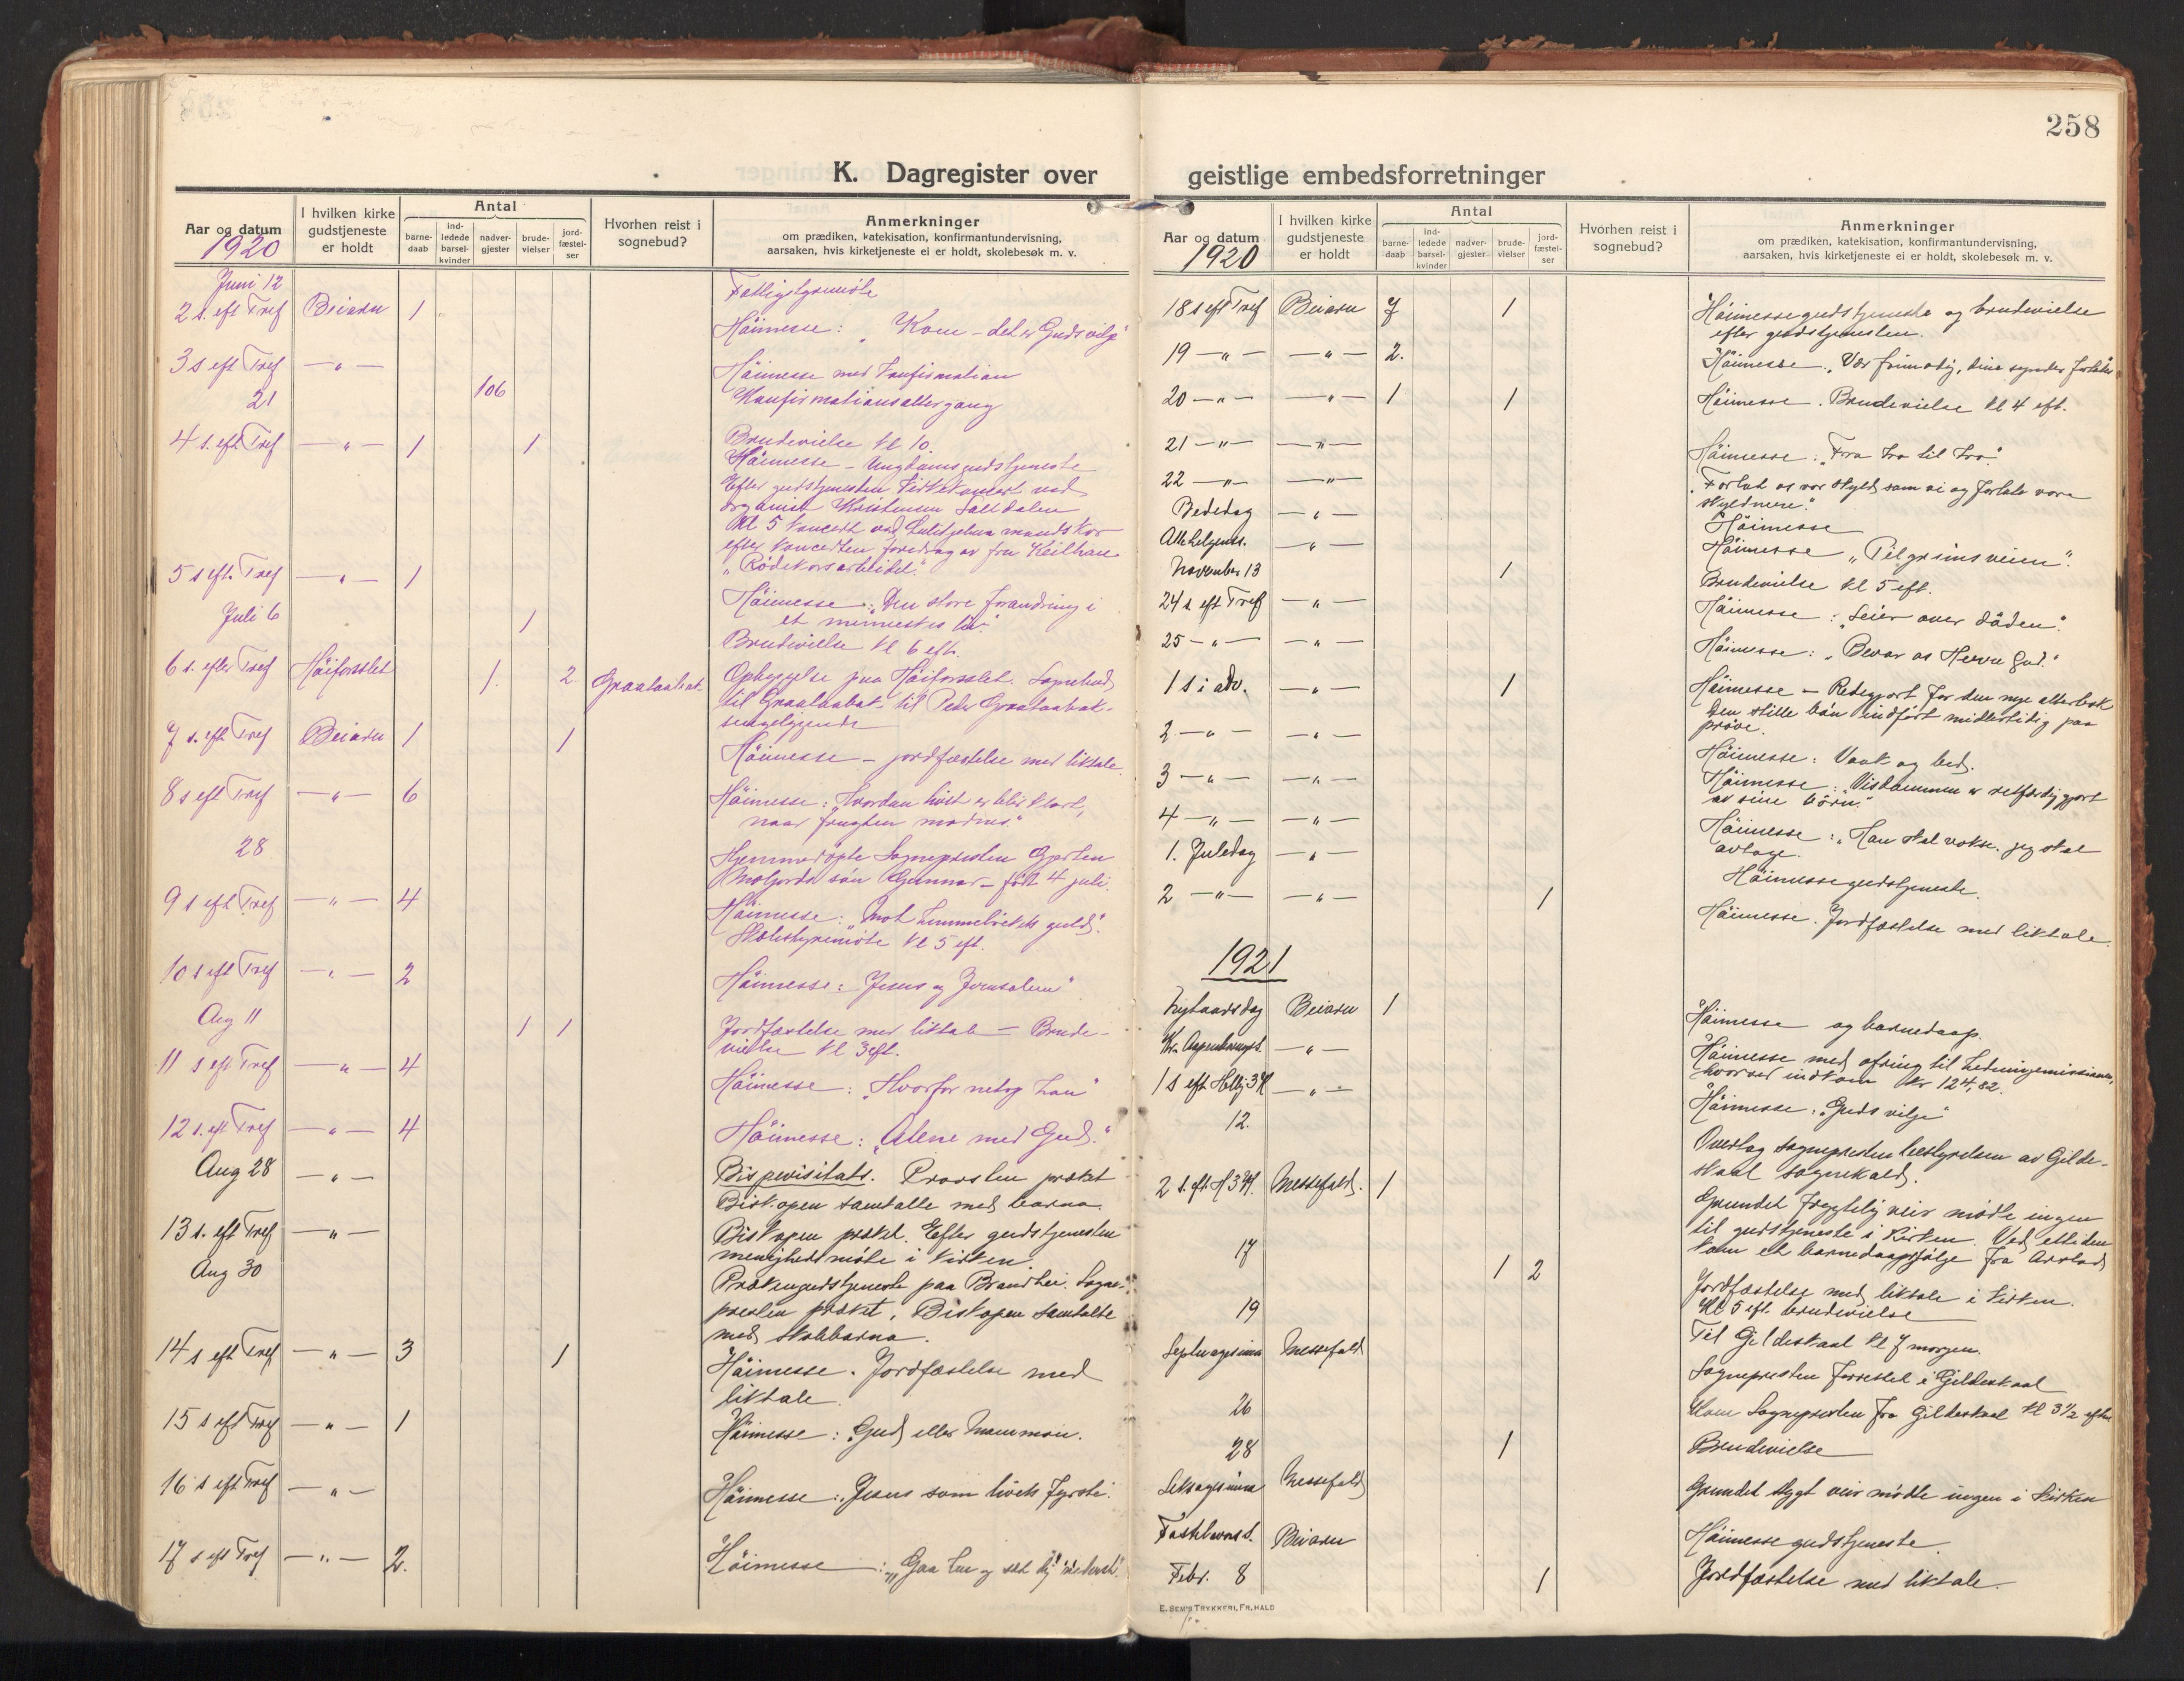 258
K. Dagregister over
geistlige embedsforretninger
Aar og datum
1920
I hvilken kirke
gudstjeneste
er holdt
Antal
barne-
daab
ind-
ledede
barsel-
kvinder
nadver-
gjester
brude-
vielser
jord-
fæstel-
ser
Hvorhen reist i
sognebud?
Anmerkninger
om prædiken, katekisation, konfirmantundervisning,
aarsaken, hvis kirketjeneste ei er holdt, skolebesøk m. v.
Juni 12
Fattigstyremöte
2 s. eft Tref Beiarn 1 Höimesse: "Kom - det er Guds vilje"
3 s eft Tref — " — Höimesse med konfirmation
21 106 Konfirmationsaltergang
4 s. eft Tref — " — 1 1 Brudevielse kl 10.
Höimesse - Ungdomsgudstjeneste
Efter gudstjenesten kirkekoncert ved
organist Kristensen Saltdalen
Kl 5 koncert ved Sulitjelma mandskor
efter koncerten foredrag av fru Keilhau
"Rödekorsarbeidet."
5 s eft. Tref — " — 1 Höimesse: "Den store forandring i
et menneskes liv."
Juli 6 1 Brudevielse kl 6 eft.
6 s. efter Tref Höiforslet 1. 2. Graataabak Opbyggelse paa Höiforslet. Sognebud
til Graataabak til Peder Graataabak -
sengeliggende
7 s. eft Tref Beiarn 1 1 Höimesse - jordfæstelse med liktale.
8 s eft Tref — " — 6 Höimesse: "Hvordan livet er blir klart,
naar frugten modnes."
28 Hjemmedöpte Sognepresten Gjerten
Moljords sön Gunnar - födt 4 juli.
9 s eft Tref — " — 4 Höimesse: "Mot himmelrikets guld".
Skolestyremöte kl 5 eft.
10 s eft Tref — " — 2 Höimesse: Jesus og Jerusalem"
Aug 11 1 1 Jordfæstelse med liktale - Brude-
vielse kl 3 eft.
11 s eft Tref — " — 4 Höimesse: "Hvorfor netop han"
12 s. eft Tref — " — 4 Höimesse: "Alene med Gud."
Aug 28 — " — Bispevisitats. Provsten præket
Biskopen samtalte med barna.
13 s. eft Tref — " — Biskopen præket. Efter gudstjenesten
menighetsmöte i kirken.
Aug 30 Prækengudstjeneste paa Brandhei. Sogne-
presten præket, Biskopen samtalte
med skolebarna.
14 s eft Tref — " — 3 1 Höimesse. Jordfæstelse med
liktale.
15 s eft Tref — " — 1 Höimesse: "Gud eller Mammon.
16 s eft Tref — " — Höimesse: "Jesus som livets fyrste.
17 s eft Tref — " — 2. Höimesse: "Gaa hen og sæt dig nederst".
Aar og datum
1920
I hvilken kirke
gudstjeneste
er holdt
Antal
barne-
daab
ind-
ledede
barsel-
kvinder
nadver-
gjester
brude-
vielser
jord-
fæstel-
ser
Hvorhen reist i
sognebud?
Anmerkninger
om prædiken, katekisation, konfirmantundervisning,
aarsaken, hvis kirketjeneste ei er holdt, skolebesøk m. v.
18 s eft Tref Beiarn 7 1 Höimessegudstjeneste og brudevielse
efter gudstjenesten.
19 — " — — " — 2. Höimesse. "Vær frimodig, dine synder forlates"
20 — " — — " — 1 1 Höimesse. Brudevielse kl 4 eft.
21 — " — — " — Höimesse: "Fra tro til tro."
22 — " — — " — "Forlat os vor skyld som vi og forlate vore
skyldnere."
Bededag — " — Höimesse
Allehelgens. — " — Höimesse "Pilgrimsveien".
November 13 1 Brudevielse kl 5 eft.
24 s. eft Tref — " — Höimesse: "Seier over döden".
25 — " — — " — Höimesse: "Bevar os Herre Gud."
1 s i adv. — " — 1 Höimesse - Redegjort for den nye alterbok
Den stille bön indfört midlertidig paa
pröve.
2 — " — — " — Höimesse: Vaak og bed.
3 — " — — " — Höimesse: "Visdommen er retfærdiggjort
av sine börn."
4 — " — — " — Höimesse: "Han skal vokse, jeg skal
avtage.
1. Juledag — " — Höimessegudstjeneste.
2 — " — — " — 1 Höimesse. Jordfæstelse med liktale.
1921
Nytaarsdag Beiarn 1 Höimesse og barnedaap.
Kr. Aapenbaringst. — " — Höimesse med ofring til Hedningemissionen,
hvorved indkom kr 124,82.
1 s eft Hellig 3 K — " — Höimesse: "Guds vilje"
12. Overtog sognepresten bestyrelsen av Gilde-
skaal sognekald.
2 s. eft H 3 K. Messefald. 1 Grundet frygtelig veir mödte ingen
til gudstjeneste i Kirken. Ved ettiden
kom et barnedaapsfölge fra Arstad
17 1 2 Jordfæstelse med liktale i kirken.
Kl 5 eft. brudevielse
19 Til Gildeskaal kl 7 morgen.
Septuagesima Messefald Sognepresten forrettet i Gildeskaal
26 Kom Sognepresten fra Gildeskaal kl 3½ eftm
28 1 Brudevielse
Seksagesima Messefald Grundet stygt veir mödte ingen i Kirken
Fastelavnss. Beiarn Höimessegudstjeneste.
Febr. 8 1 Jordfæstelse med liktale.
E. SEM'S TRYKKERI, FR.HALD